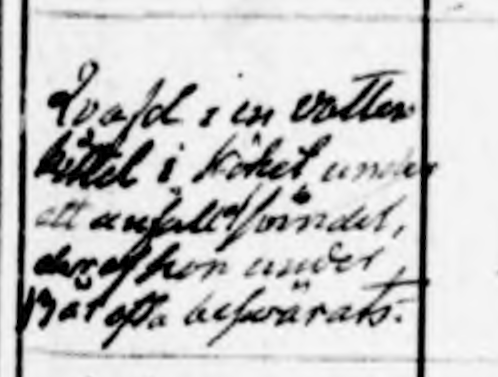 Qvafd i en vatten
kittel i köket under
ett anfall af svindel,
deraf hon under
13 år ofta besvärats.